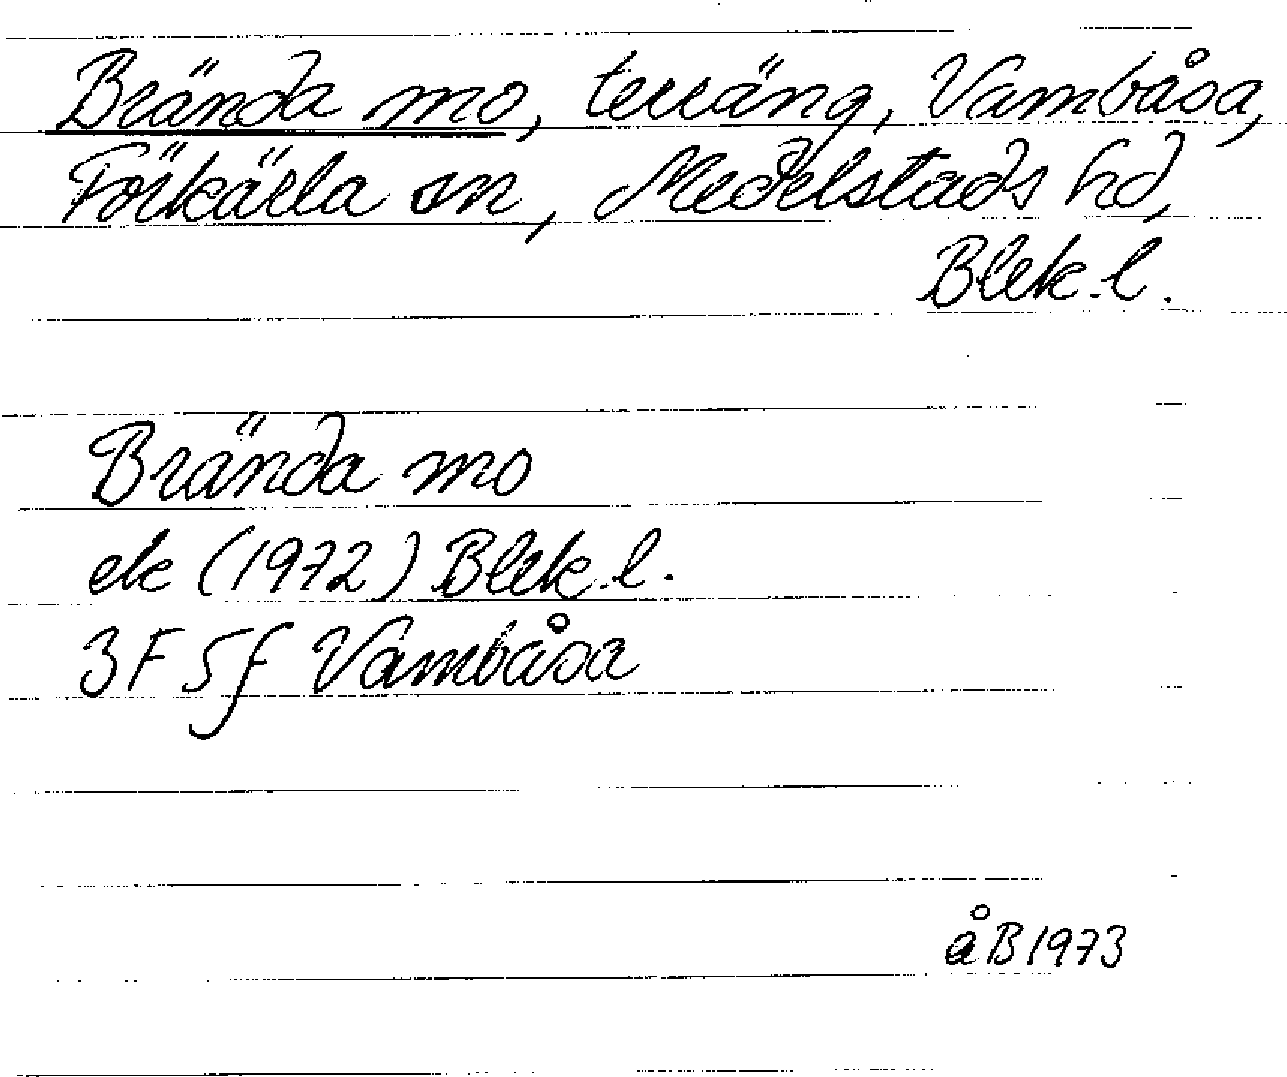 Brända mo, terräng, Vambåsa,
Förkärla sn, Medelstads hd,
Blek. l.
Brända mo
ek (1972) Blek. l.
3F 5f Vambåsa
åB 1973